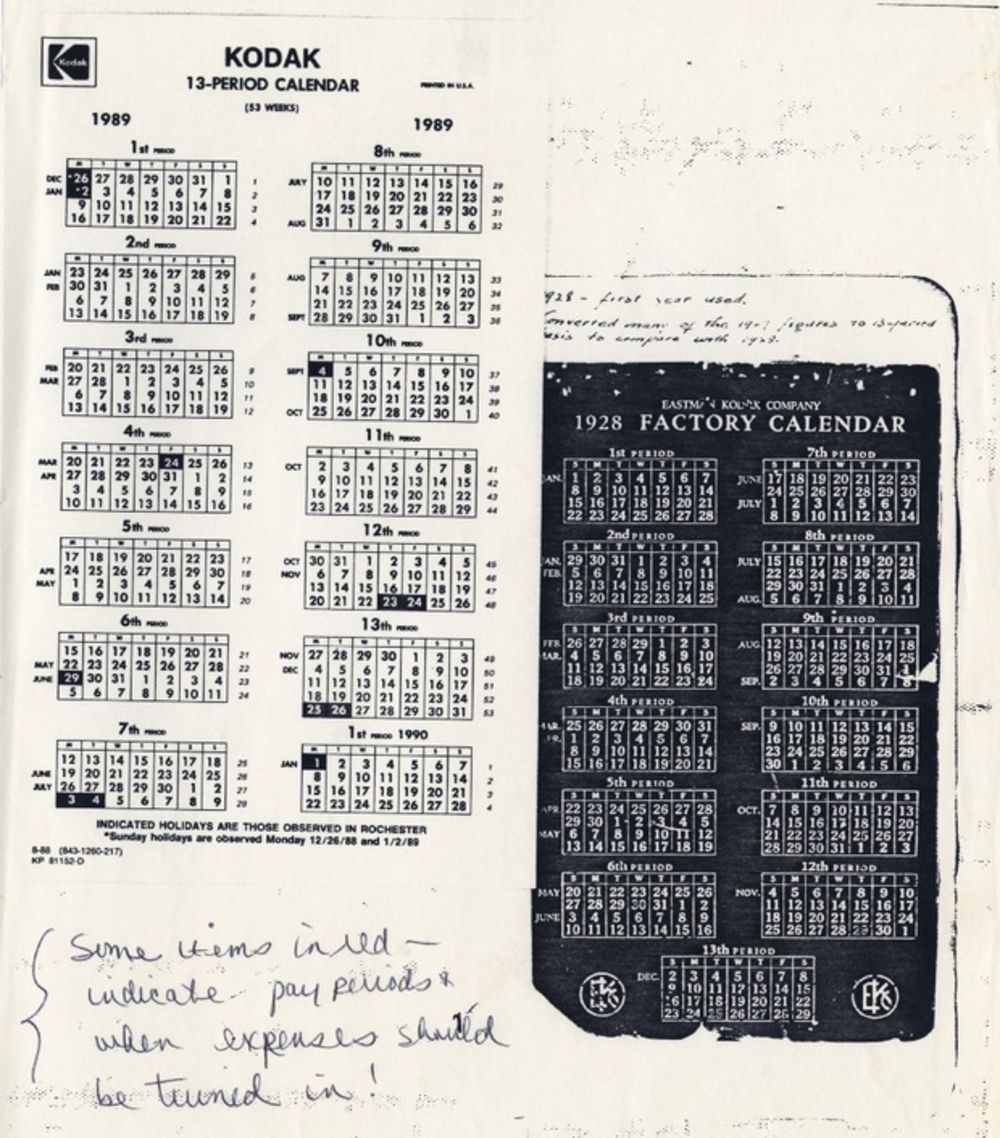 Kodak
KODAK
13-PERIOD CALENDAR
PRINTED IN U.S.A.
(53 WEEKS)
1989
1st PERIOD
M T W T F S S
DEC *26 27 28 29 30 31 1 1
JAN *2 3 4 5 6 7 8 2
9 10 11 12 13 14 15 3
16 17 18 19 20 21 22 4
2nd PERIOD
M T W T F S S
JAN 23 24 25 26 27 28 29 5
FEB 30 31 1 2 3 4 5 6
6 7 8 9 10 11 12 7
13 14 15 16 17 18 19 8
3rd PERIOD
M T W T F S S
FEB 20 21 22 23 24 25 26 9
MAR 27 28 1 2 3 4 5 10
6 7 8 9 10 11 12 11
13 14 15 16 17 18 19 12
4th PERIOD
M T W T F S S
MAR 20 21 22 23 24 25 26 13
APR 27 28 29 30 31 1 2 14
3 4 5 6 7 8 9 15
10 11 12 13 14 15 16 16
5th PERIOD
M T W T F S S
17 18 19 20 21 22 23 17
APR 24 25 26 27 28 29 30 18
MAY 1 2 3 4 5 6 7 19
8 9 10 11 12 13 14 20
6th PERIOD
M T W T F S S
15 16 17 18 19 20 21 21
MAY 22 23 24 25 26 27 28 22
JUNE 29 30 31 1 2 3 4 23
5 6 7 8 9 10 11 24
7th PERIOD
M T W T F S S
12 13 14 15 16 17 18 25
JUNE 19 20 21 22 23 24 25 26
JULY 26 27 28 29 30 1 2 27
3 4 5 6 7 8 9 28
1989
8th PERIOD
M T W T F S S
JULY 10 11 12 13 14 15 16 29
17 18 19 20 21 22 23 30
24 25 26 27 28 29 30 31
AUG 31 1 2 3 4 5 6 32
9th PERIOD
M T W T F S S
AUG 7 8 9 10 11 12 13 33
14 15 16 17 18 19 20 34
21 22 23 24 25 26 27 35
SEPT 28 29 30 31 1 2 3 36
10th PERIOD
M T W T F S S
SEPT 4 5 6 7 8 9 10 37
11 12 13 14 15 16 17 38
18 19 20 21 22 23 24 39
OCT 25 26 27 28 29 30 1 40
11th PERIOD
M T W T F S S
OCT 2 3 4 5 6 7 8 41
9 10 11 12 13 14 15 42
16 17 18 19 20 21 22 43
23 24 25 26 27 28 29 44
12th PERIOD
M T W T F S S
OCT 30 31 1 2 3 4 5 45
NOV 6 7 8 9 10 11 12 46
13 14 15 16 17 18 19 47
20 21 22 23 24 25 26 48
13th PERIOD
M T W T F S S
NOV 27 28 29 30 1 2 3 49
DEC 4 5 6 7 8 9 10 50
11 12 13 14 15 16 17 51
18 19 20 21 22 23 24 52
25 26 27 28 29 30 31 53
1st PERIOD 1990
M T W T F S S
JAN 1 2 3 4 5 6 7 1
8 9 10 11 12 13 14 2
15 16 17 18 19 20 21 3
22 23 24 25 26 27 28 4
INDICATED HOLIDAYS ARE THOSE OBSERVED IN ROCHESTER
*Sunday holidays are observed Monday 12/26/88 and 1/2/89
8-88 (843-1260-217)
KP 81152-D
928 - first year used.
onverted many of the 1927 figures to 13-period
asis to compare with 1928.
EASTMAN KODAK COMPANY
1928 FACTORY CALENDAR
1st PERIOD
S M T W T F S
JAN. 1 2 3 4 5 6 7
8 9 10 11 12 13 14
15 16 17 18 19 20 21
22 23 24 25 26 27 28
2nd PERIOD
S M T W T F S
JAN. 29 30 31 1 2 3 4
FEB. 5 6 7 8 9 10 11
12 13 14 15 16 17 18
19 20 21 22 23 24 25
3rd PERIOD
S M T W T F S
FEB. 26 27 28 29 1 2 3
MAR. 4 5 6 7 8 9 10
11 12 13 14 15 16 17
18 19 20 21 22 23 24
4th PERIOD
S M T W T F S
MAR. 25 26 27 28 29 30 31
APR. 1 2 3 4 5 6 7
8 9 10 11 12 13 14
15 16 17 18 19 20 21
5th PERIOD
S M T W T F S
APR. 22 23 24 25 26 27 28
29 30 1 2 3 4 5
MAY 6 7 8 9 10 11 12
13 14 15 16 17 18 19
6th PERIOD
S M T W T F S
MAY 20 21 22 23 24 25 26
27 28 29 30 31 1 2
JUNE 3 4 5 6 7 8 9
10 11 12 13 14 15 16
7th PERIOD
S M T W T F S
JUNE 17 18 19 20 21 22 23
24 25 26 27 28 29 30
JULY 1 2 3 4 5 6 7
8 9 10 11 12 13 14
8th PERIOD
S M T W T F S
JULY 15 16 17 18 19 20 21
22 23 24 25 26 27 28
29 30 31 1 2 3 4
AUG. 5 6 7 8 9 10 11
9th PERIOD
S M T W T F S
AUG. 12 13 14 15 16 17 18
19 20 21 22 23 24 25
26 27 28 29 30 31 1
SEP. 2 3 4 5 6 7 8
10th PERIOD
S M T W T F S
SEP. 9 10 11 12 13 14 15
16 17 18 19 20 21 22
23 24 25 26 27 28 29
30 1 2 3 4 5 6
11th PERIOD
S M T W T F S
OCT. 7 8 9 10 11 12 13
14 15 16 17 18 19 20
21 22 23 24 25 26 27
28 29 30 31 1 2 3
12th PERIOD
S M T W T F S
NOV. 4 5 6 7 8 9 10
11 12 13 14 15 16 17
18 19 20 21 22 23 24
25 26 27 28 29 30 1
13th PERIOD
S M T W T F S
DEC. 2 3 4 5 6 7 8
9 10 11 12 13 14 15
16 17 18 19 20 21 22
23 24 25 26 27 28 29
EK EK
Some items in red —
indicate pay periods &
when expenses should
be turned in!